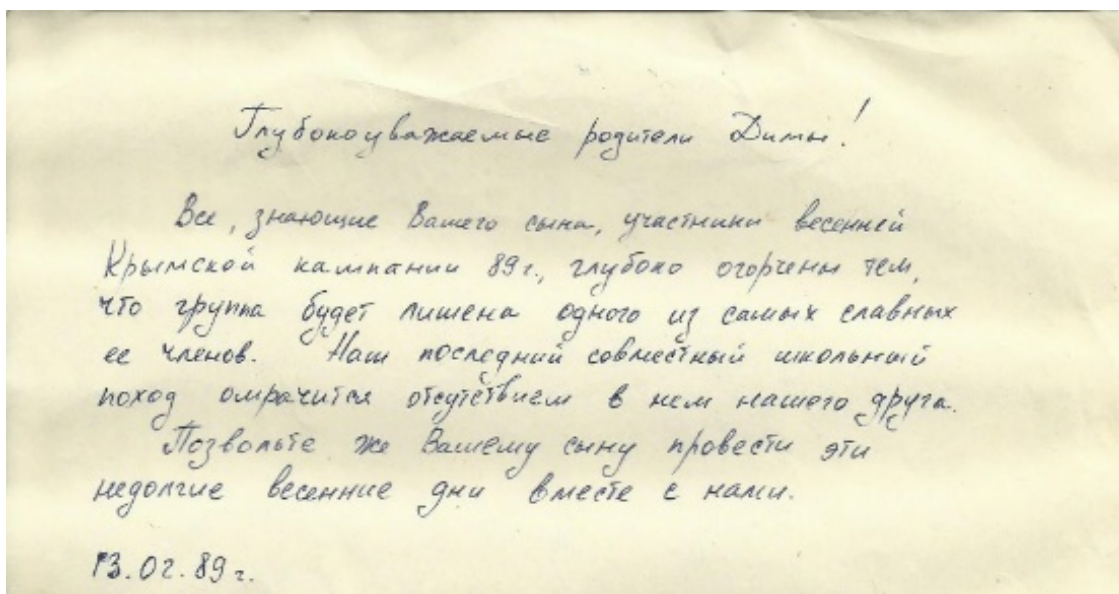 Глубокоуважаемые родители Димы!
Все, знающие Вашего сына, участники весенней
Крымской кампании 89г., глубоко огорчены тем,
что группа будет лишена одного из самых славных
ее членов. Наш последний совместный школьный
поход омрачится отсутствием в нем нашего друга.
Позвольте же Вашему сыну провести эти
недолгие весенние дни вместе с нами.
13.02.89 г.